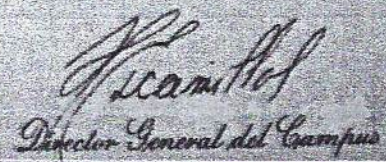 Director General del Campus